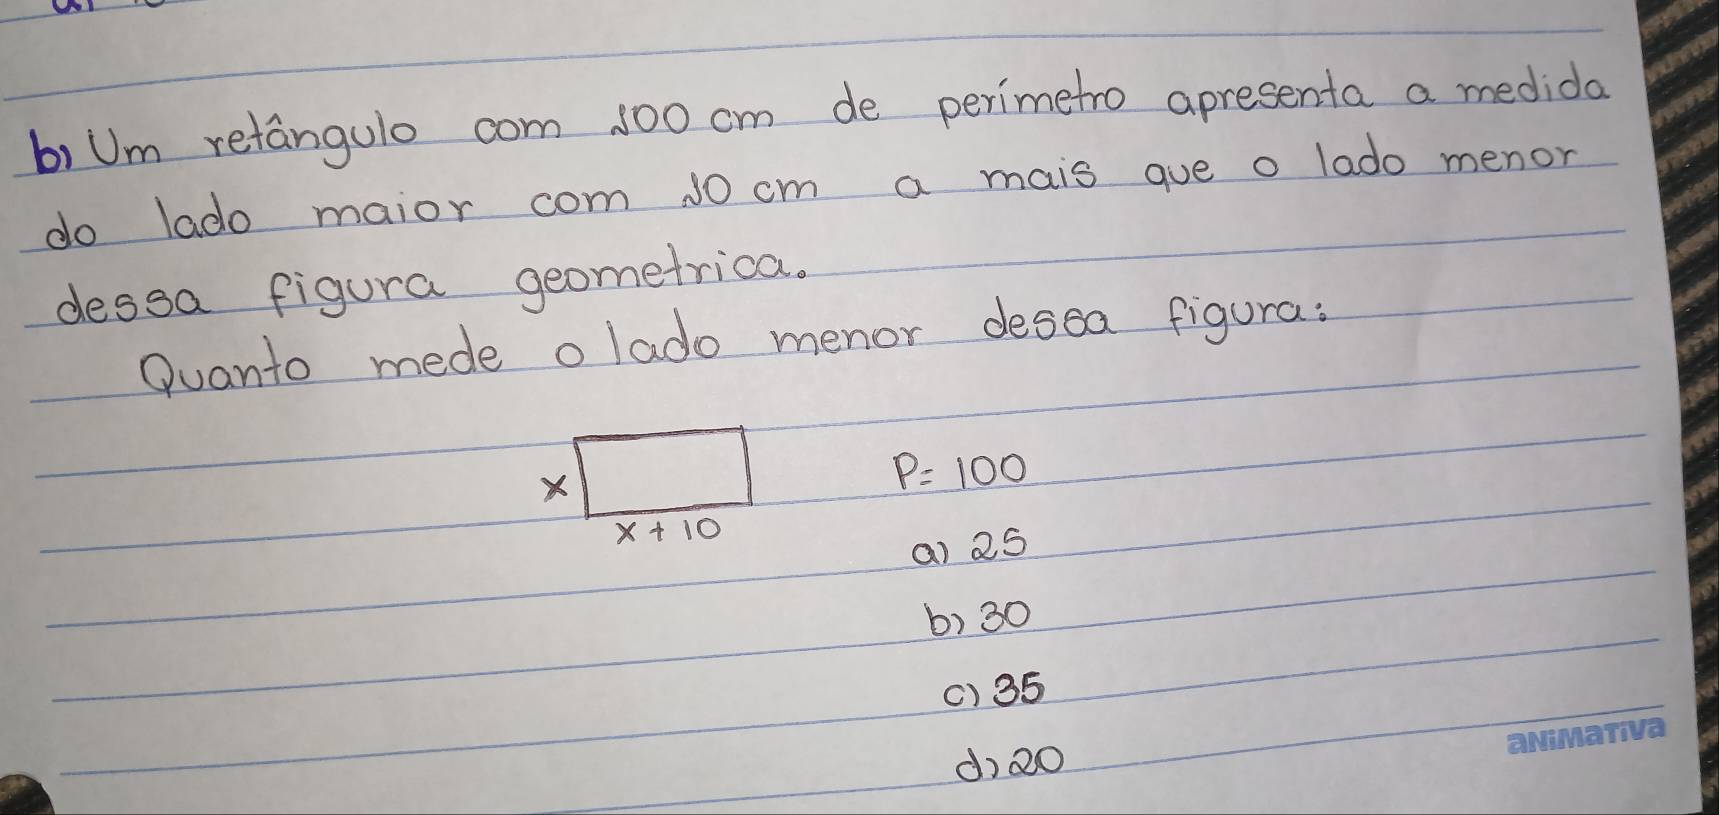 b) Um retângulo com 100 cm de perímetro apresenta a medida
do lado maior com 10 cm a mais que o lado menor
dessa figura geometrica.
Quanto mede o lado menor dessa figura:
x
x + 10
P = 100
a) 25
b) 30
c) 35
d) 20
aNiMaTiVa